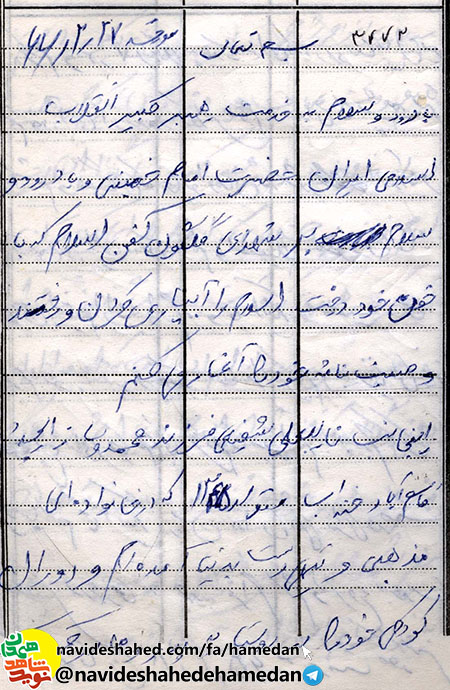 ۳۷۷۲ بسم تعالی مورخه ۶۶/۲/۲۷
با درود و سلام به خدمت رهبر کبیر انقلاب
اسلامی ایران حضرت امام خمینی و با درود و
سلام بر شهدای گلگون کفن اسلام که با
خون خود درخت اسلام را آبیاری کردن و رفتند
وصیت نامه خود را آغاز می کنم
اینجانب شفیعی فرزند محمد
متولد که در خانواده ای
مذهبی و تهی دست به دنیا آمده ام و دوران
کودکی خود را
navideshahed.com/fa/hamedan
@navideshahedehamedan
نوید شاهد